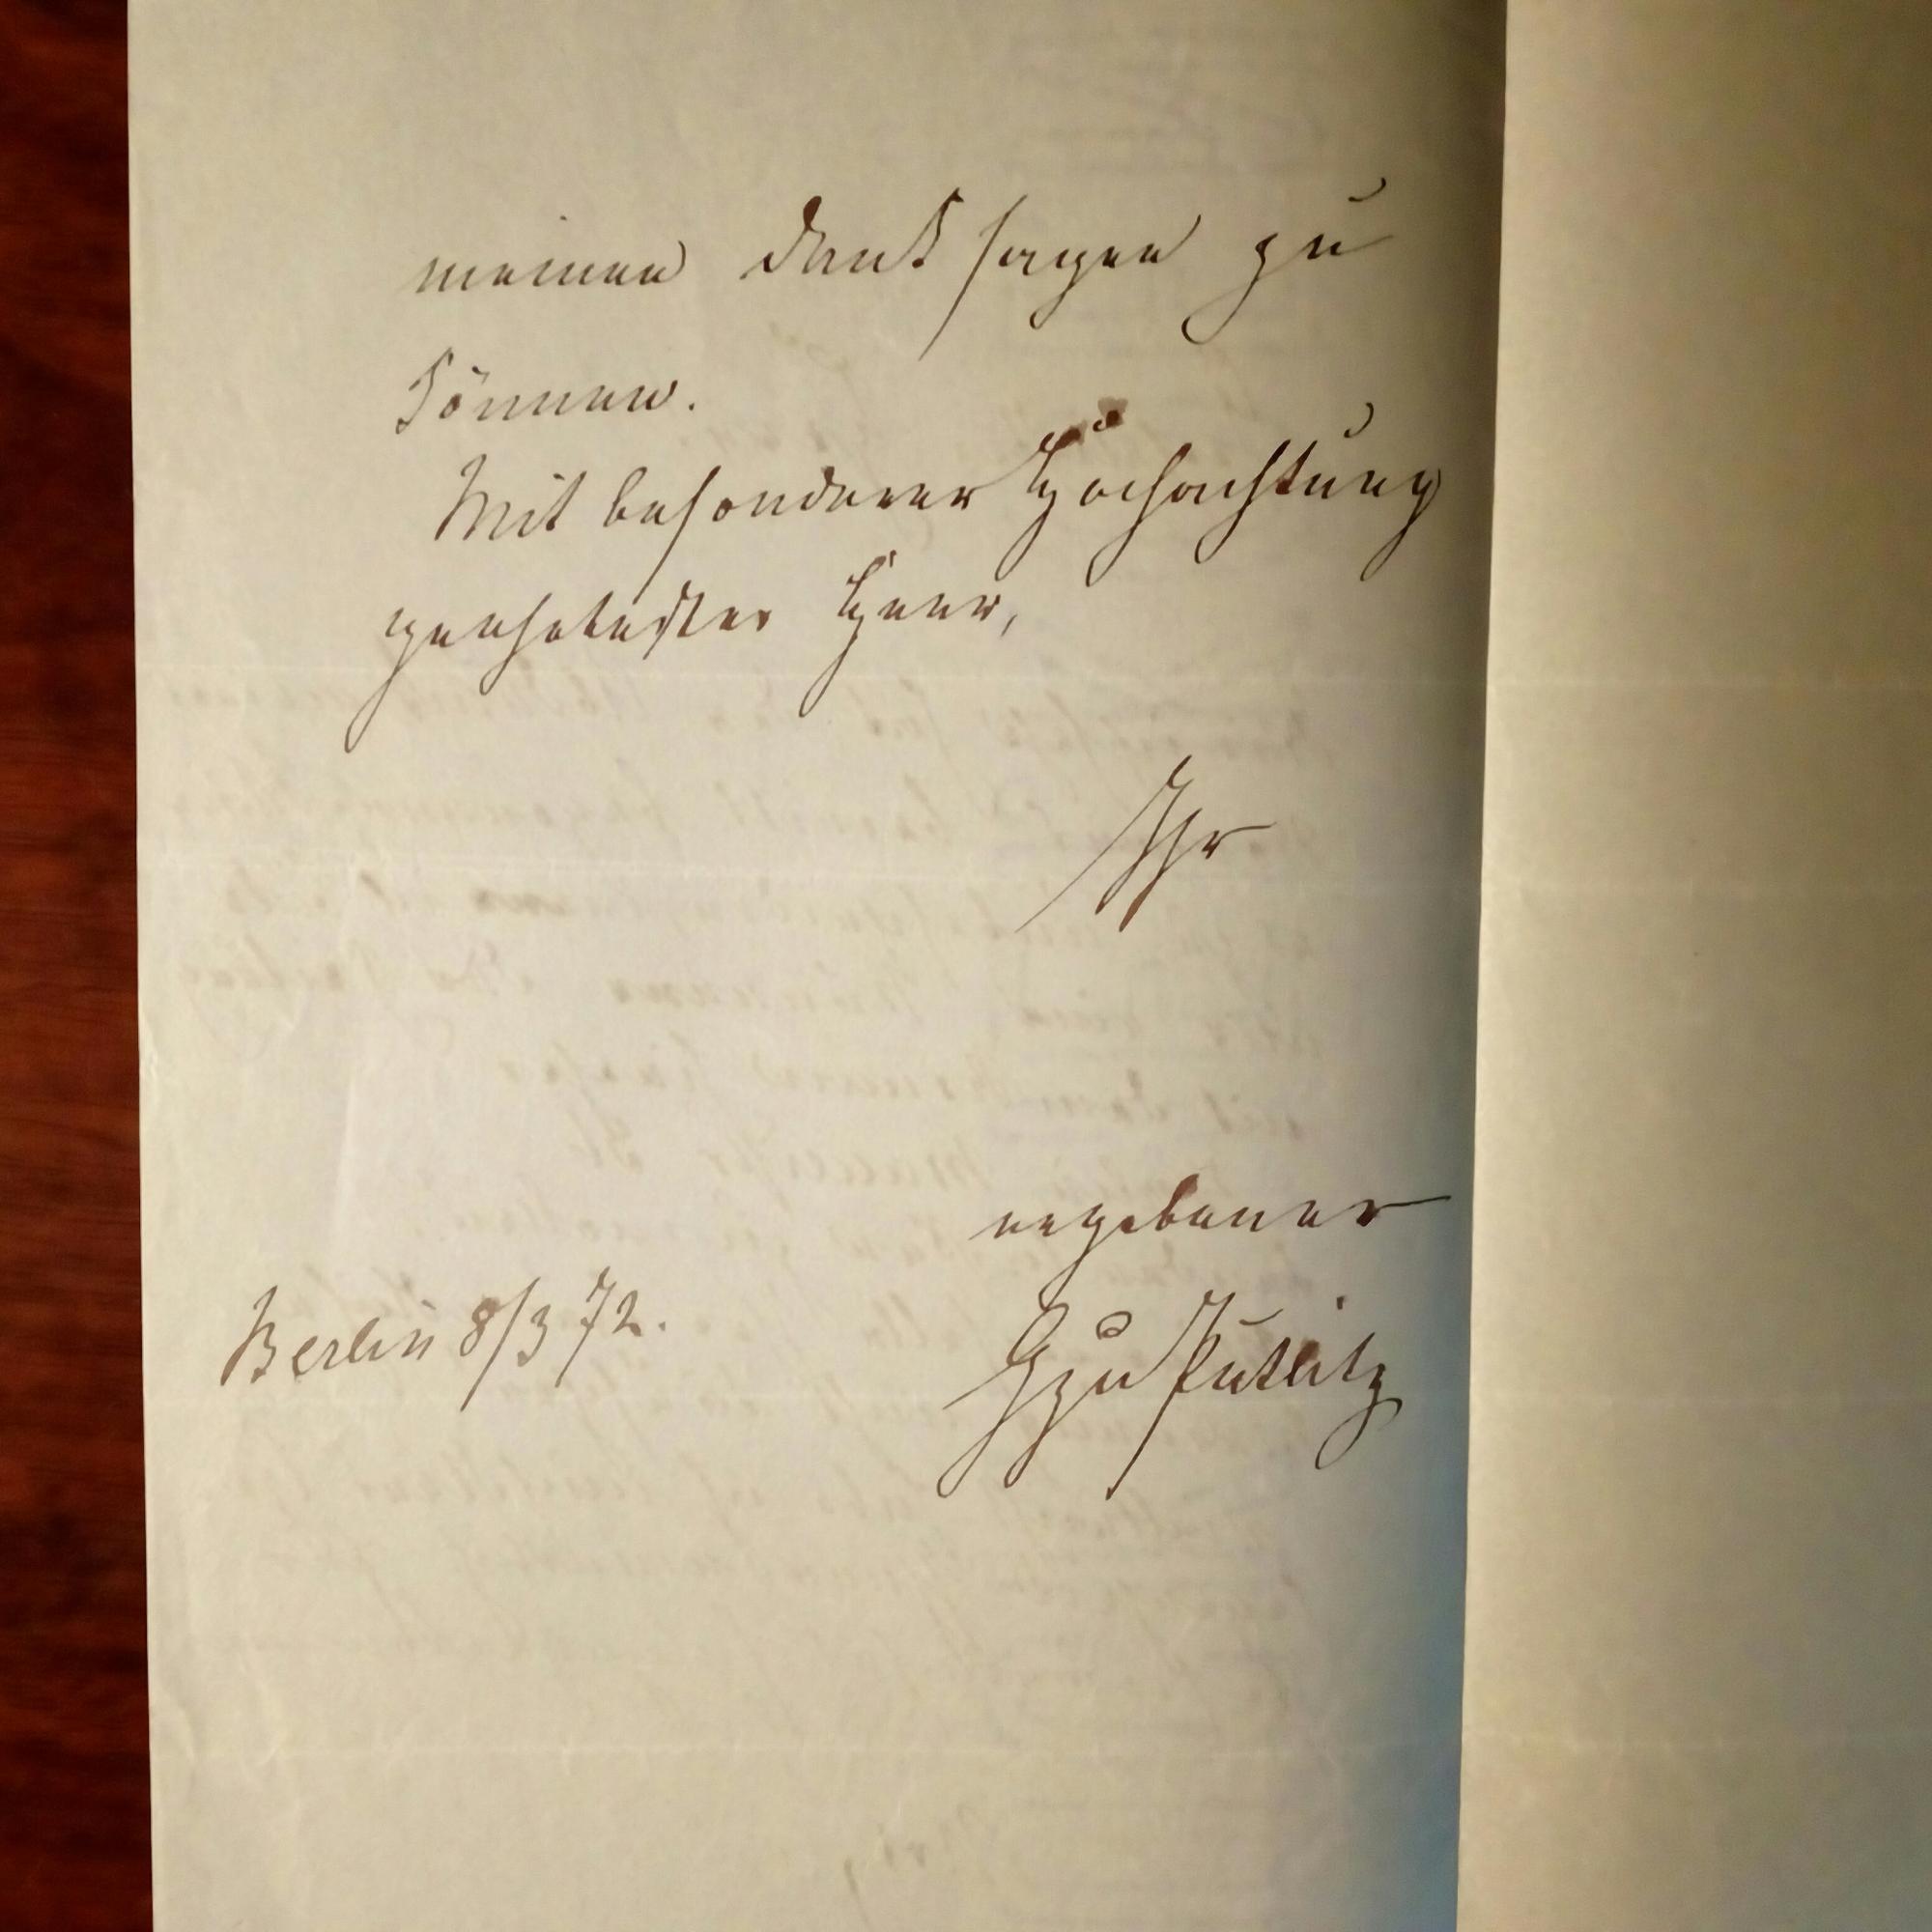 meinen Dank sagen zu
können.
Mit besonderer Hochachtung
geehrtester Herr,
Ihr
ergebener
Berlin 8/3 72.
G zu Putlitz